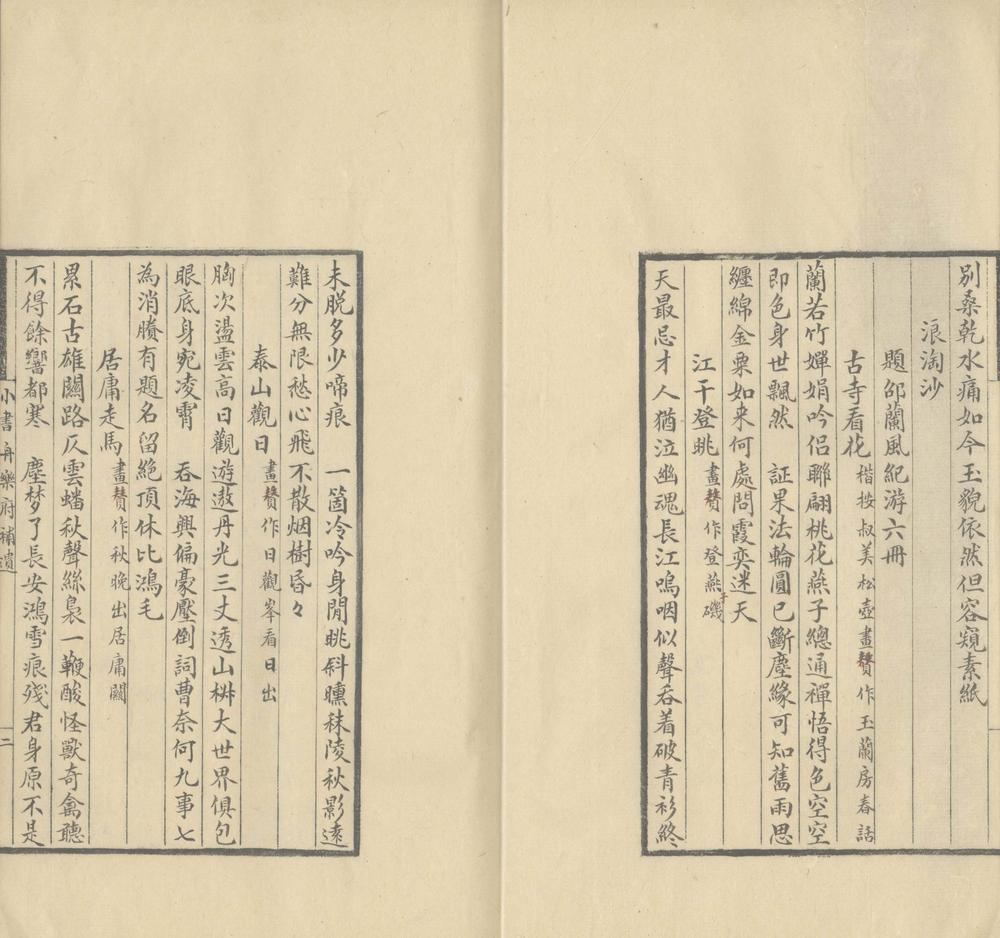 別桑乾水痛如今玉貌依然但容窺素紙
浪淘沙
題邵蘭風紀游六冊
古寺看花 楷按叔美松壺畫贅作玉蘭房春話
蘭若竹嬋娟吟侶聯翩桃花燕子總通禪悟得色空空
即色身世飄然 証果法輪圓已斷塵緣可知舊雨思
纏綿金粟如来何處問霞奕迷天
江干登眺 畫贅作登燕子磯
天最忌才人猶泣幽魂長江嗚咽似聲吞着破青衫終
未脱多少啼痕 一箇冷吟身閒眺斜曛秣陵秋影遠
難分無限愁心飛不散烟樹昏々
泰山觀日 畫贅作日觀峯看日出
胸次盪雲高日觀遊遨丹光三丈透山椒大世界俱包
眼底身宛凌霄 吞海興偏豪壓倒詞曹奈何九事七
為消賸有題名留絶頂休比鴻毛
居庸走馬 畫贅作秋晚出居庸關
累石古雄關路仄雲蟠秋聲絲裊一鞭酸怪獸奇禽聽
不得餘響都寒 塵梦了長安鴻雪痕殘君身原不是
小書舟樂府補遺
二